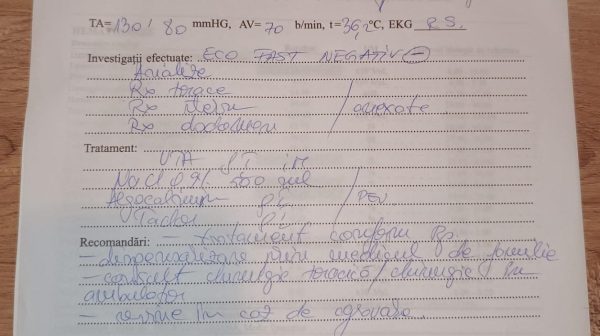 TA= 130 / 80 mmHG, AV= 70 b/min, t= 36,2°C, EKG R.S.
Investigații efectuate: ECO FAST NEGATIV (-)
Analize
Rx torace
Rx
Rx / anexate
Tratament:
VTA f I im
NaCl 0,9% 500 ml
Algocalmin f I / PEV
f I
Recomandări: - tratament conform Rp.
- dispensarizare prin medicul de familie
- consult chirurgie toracică / chirurgie / în
ambulator
- revine în caz de agravare.